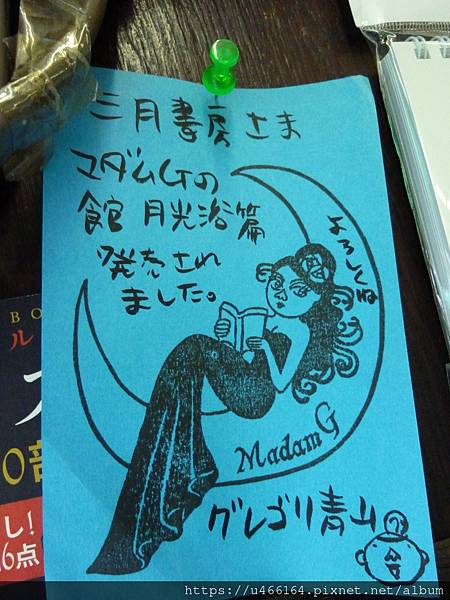 三月書房さま
マダムGの
館 月光浴篇
発売され
ました。
よろしくね
Madam G
グレゴリ青山
BO
ル
0部
し!
6点
https://u466164.pixnet.net/album